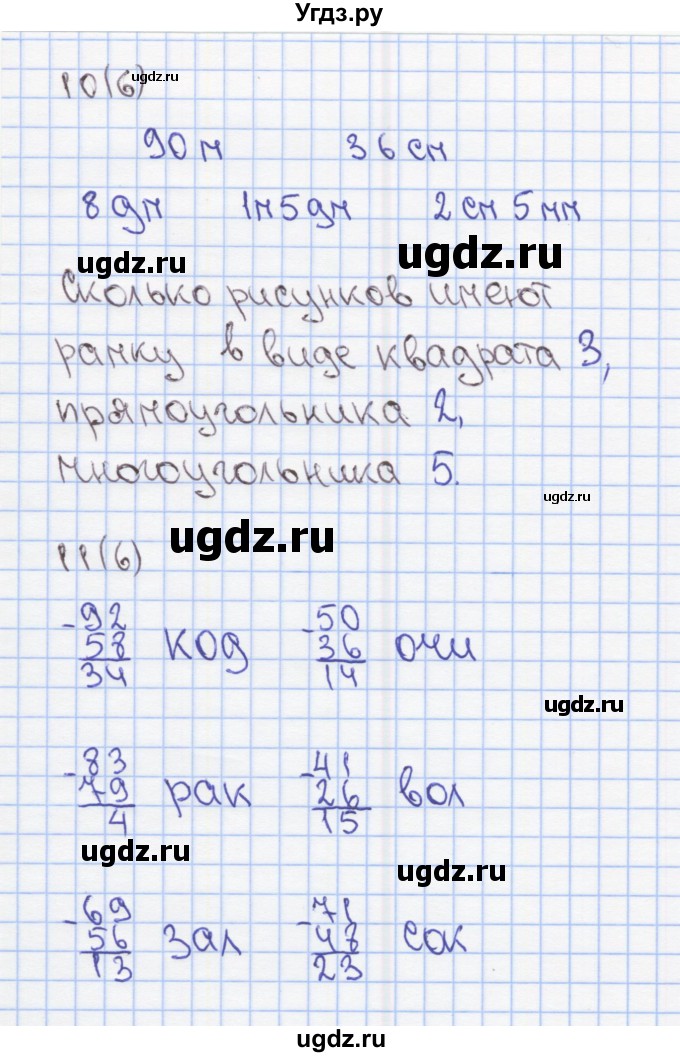 Угдз.ру
10(6) ugdz.ru
90 м 36 см
8 дм 1м 5 дм 2 см 5 мм
ugdz.ru ugdz.ru
Сколько рисунков имеют
рамку в виде квадрата 3,
прямоугольника 2,
многоугольника 5.
ugdz.ru
ugdz.ru
11(6)
-92 -50
58 код 36 очи
34 14
ugdz.ru
-83 -41
79 рак 26 вол
4 15
ugdz.ru
ugdz.ru
-69 -71
56 зал 48 сок
13 23
ugdz.ru